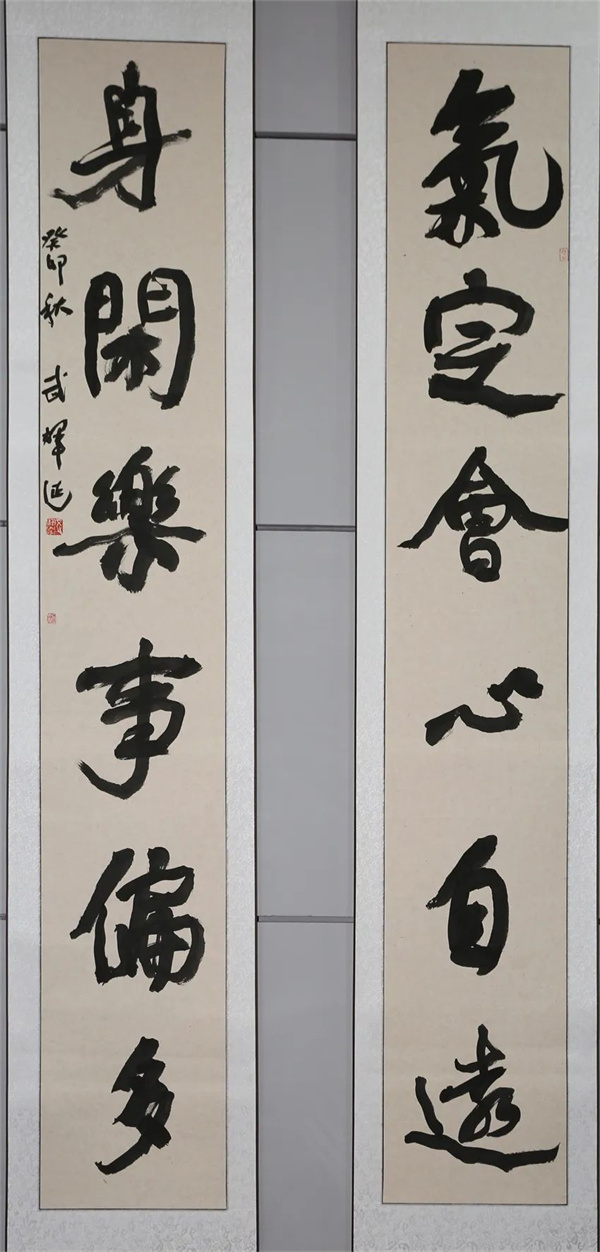 氣定會心自遠
身閑樂事偏多
癸卯秋 武輝延